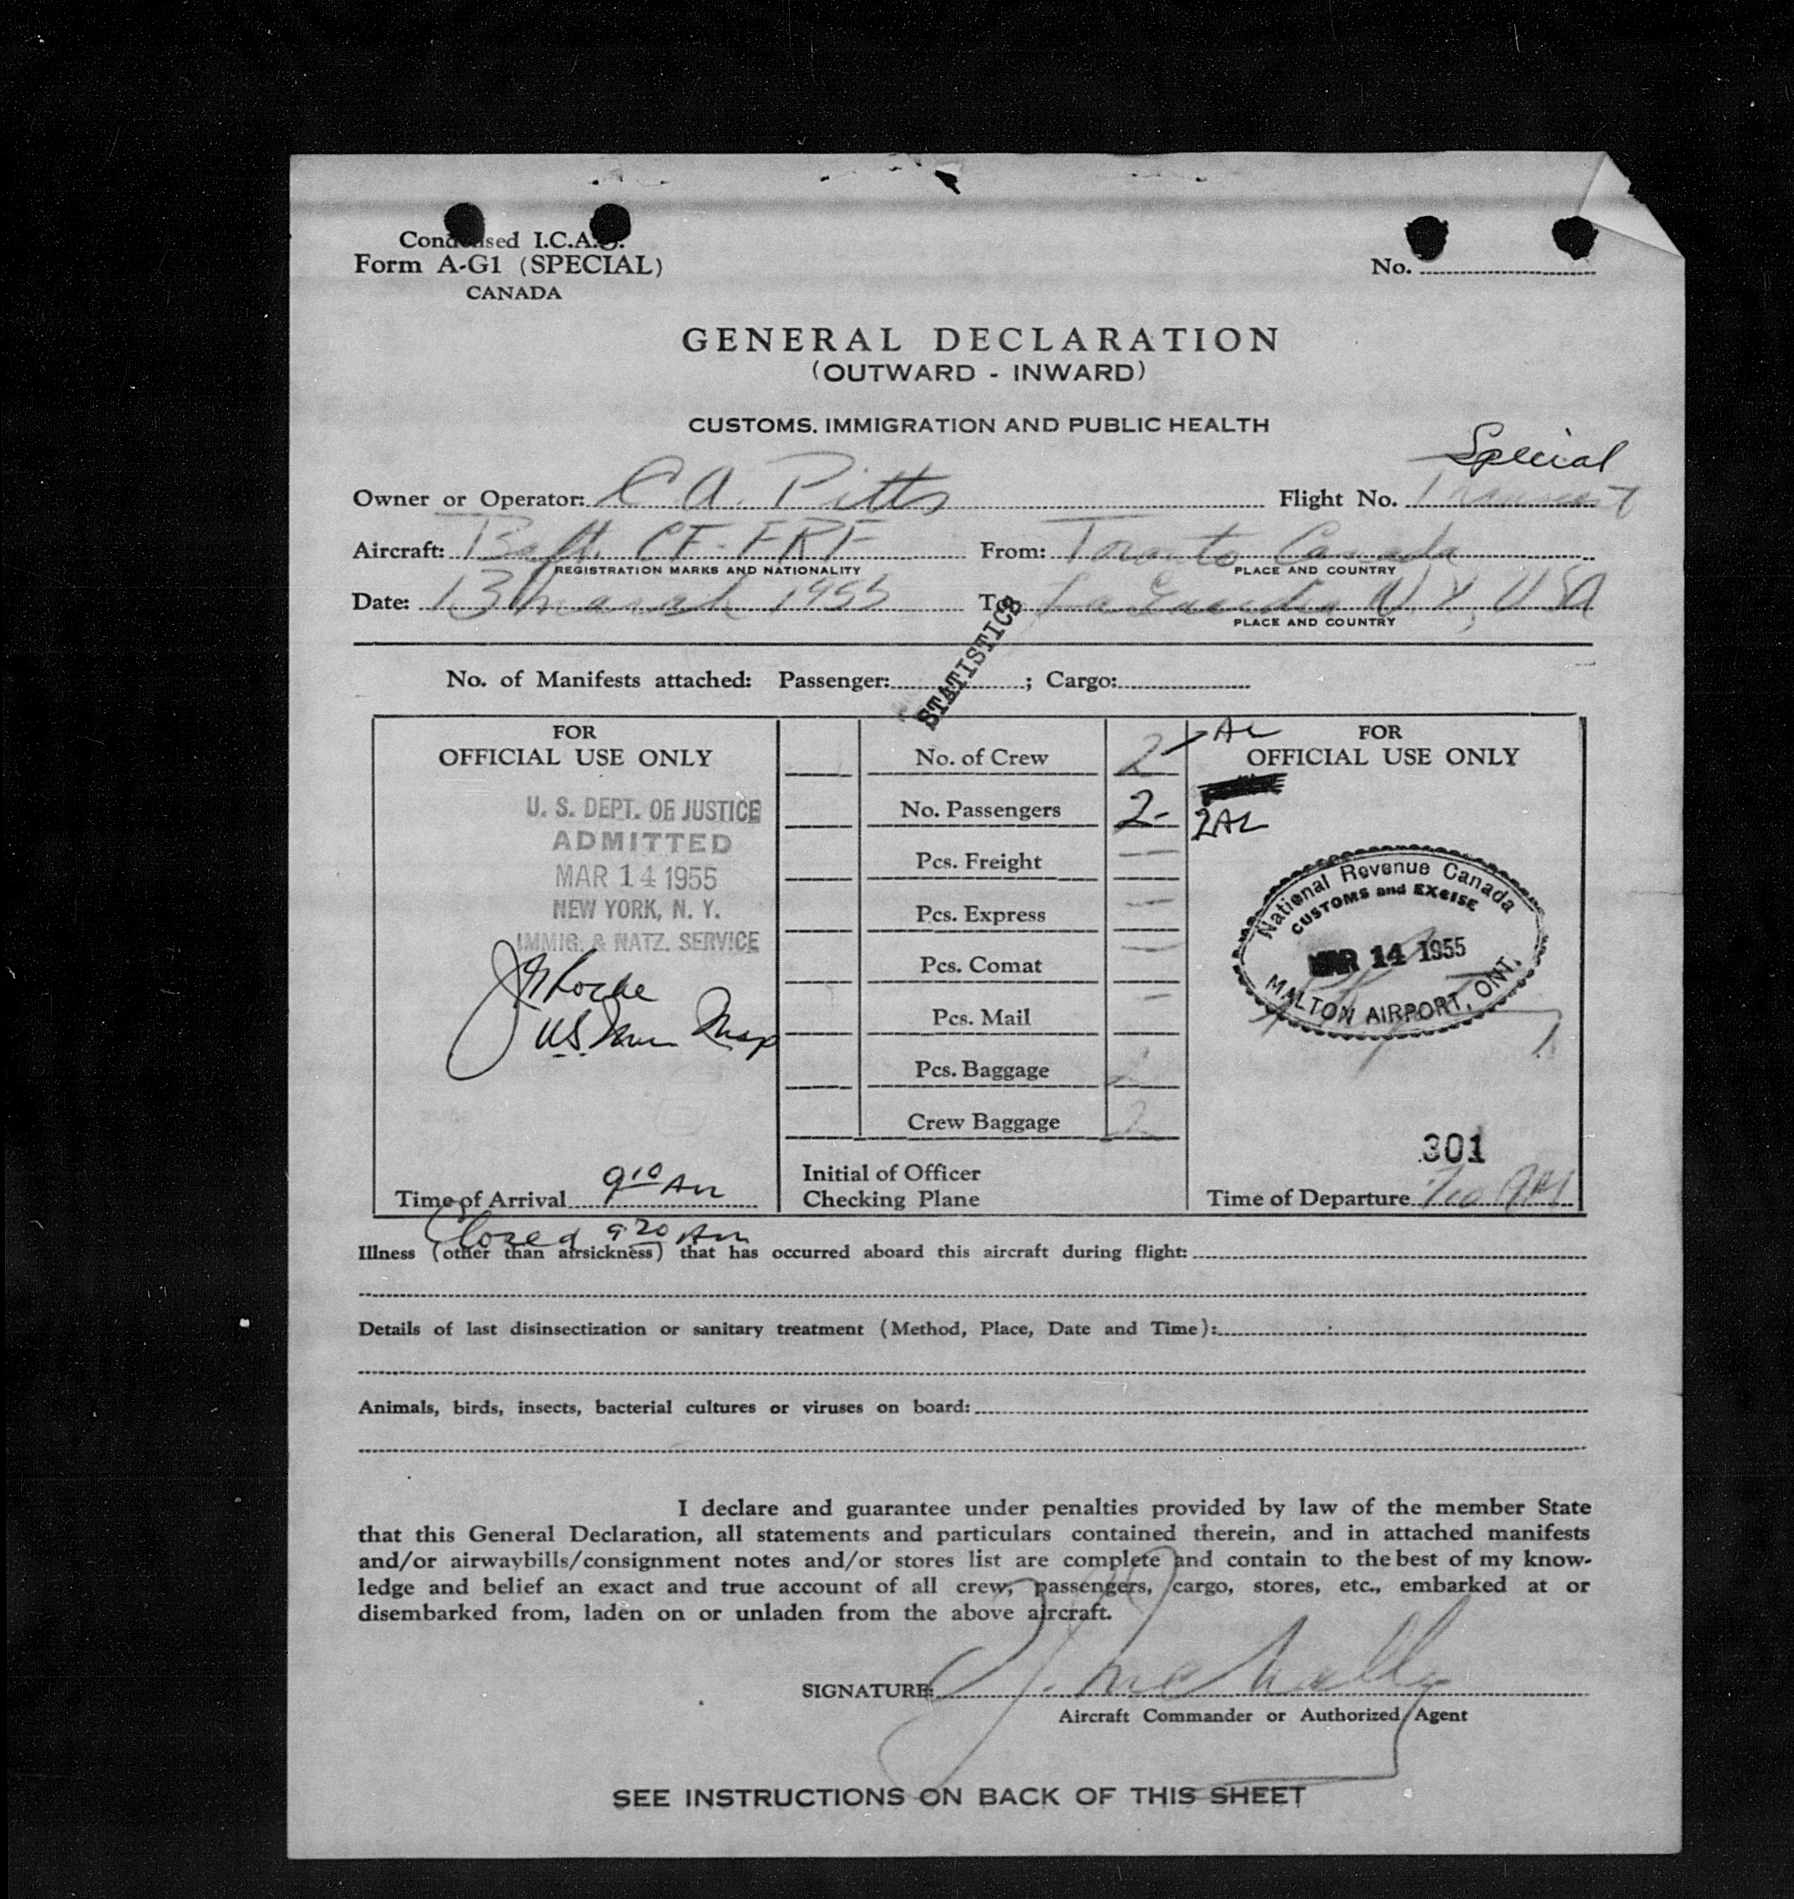 Condensed I.C.A.O.
Form A-G1 (SPECIAL)
CANADA
No.
GENERAL DECLARATION
(OUTWARD - INWARD)
CUSTOMS. IMMIGRATION AND PUBLIC HEALTH
Special
Owner or Operator: C A. Pitts Flight No.
Aircraft: CF-FRF From: Toronto Canada
REGISTRATION MARKS AND NATIONALITY PLACE AND COUNTRY
Date: 13 March 1955 To: La Guardia N.Y, USA
PLACE AND COUNTRY
STATISTICS
No. of Manifests attached: Passenger: ; Cargo:
FOR
OFFICIAL USE ONLY
U. S. DEPT. OF JUSTICE
ADMITTED
MAR 14 1955
NEW YORK, N. Y.
IMMIG. & NATZ. SERVICE
US Insp
Time of Arrival 9 10 AM
Closed 9 20 AM
No. of Crew 2
No. Passengers 2-
Pcs. Freight —
Pcs. Express —
Pcs. Comat —
Pcs. Mail —
Pcs. Baggage
Crew Baggage 2
Initial of Officer
Checking Plane
AL
FOR
OFFICIAL USE ONLY
2AL
National Revenue Canada
CUSTOMS and EXCISE
MAR 14 1955
MALTON AIRPORT, ONT.
301
Time of Departure
Illness (other than airsickness) that has occurred aboard this aircraft during flight:
Details of last disinsectization or sanitary treatment (Method, Place, Date and Time):
Animals, birds, insects, bacterial cultures or viruses on board:
I declare and guarantee under penalties provided by law of the member State
that this General Declaration, all statements and particulars contained therein, and in attached manifests
and/or airwaybills/consignment notes and/or stores list are complete and contain to the best of my know-
ledge and belief an exact and true account of all crew, passengers, cargo, stores, etc., embarked at or
disembarked from, laden on or unladen from the above aircraft.
SIGNATURE: J. McNally
Aircraft Commander or Authorized Agent
SEE INSTRUCTIONS ON BACK OF THIS SHEET